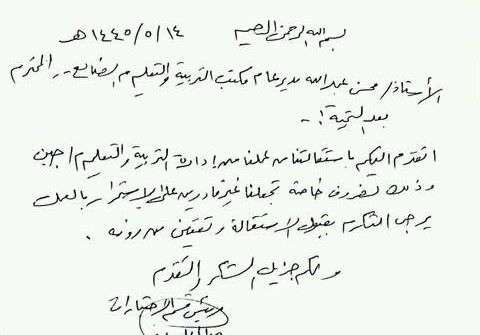 بسم الله الرحمن الرحيم ١٤/٥/١٤٤٥هـ
الأستاذ/ محسن عبدالله مدير عام مكتب التربية والتعليم م الضالع -- المحترم
بعد التحية! --
اتقدم اليكم باستقالتنا من عملنا من إدارة التربية والتعليم م/جبن
وذلك لضروف خاصة تجعلنا غير قادرين على الاستمرار بالعمل
يرجى التكرم بقبول الاستقالة وتعيين من ترونه .
ولكم جزيل الشكر والتقدم
رئيس قسم الاختبارات